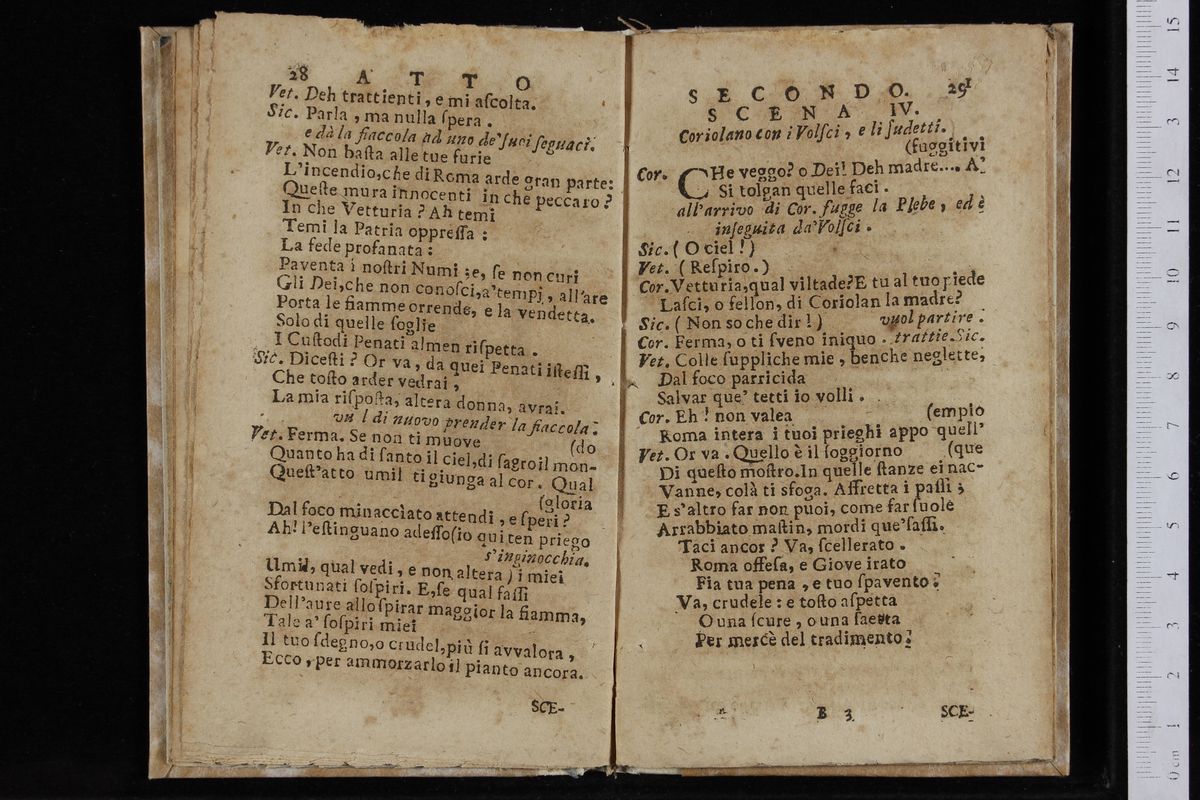 28 ATTO
Vet. Deh trattienti, e mi aſcolta.
Sic. Parla, ma nulla ſpera.
e dà la fiaccola ad uno de' ſuoi ſeguaci.
Vet. Non baſta alle tue furie
L'incendio, che di Roma arde gran parte:
Queſte mura innocenti in che peccaro?
In che Vetturia? Ah temi
Temi la Patria oppreſſa:
La fede profanata:
Paventa i noſtri Numi; e, ſe non curi
Gli Dei, che non conoſci, a' tempj, all'are
Porta le fiamme orrende, e la vendetta.
Solo di quelle ſoglie
I Cuſtodi Penati almen riſpetta.
Sic. Diceſti? Or va, da quei Penati iſteſſi,
Che toſto arder vedrai,
La mia riſpoſta, altera donna, avrai.
vu l di nuovo prender la fiaccola.
Vet. Ferma. Se non ti muove (do
Quanto ha di ſanto il ciel, di ſagro il mon-
Queſt'atto umil ti giunga al cor. Qual
(gloria
Dal foco minacciato attendi, e ſperi?
Ah! l'eſtinguano adeſſo (io qui ten priego
s'inginocchia.
Umil, qual vedi, e non altera) i miei
Sfortunati ſoſpiri. E, ſe qual faſſi
Dell'aure allo ſpirar maggior la fiamma,
Tale a' ſoſpiri miei
Il tuo ſdegno, o crudel, più ſi avvalora,
Ecco, per ammorzarlo il pianto ancora.
SCE-
SECONDO. 29
SCENA IV.
Coriolano con i Volſci, e li ſudetti.
(fuggitivi
Cor. CHe veggo? o Dei! Deh madre.... A'
Si tolgan quelle faci.
all'arrivo di Cor. fugge la Plebe, ed è
inſeguita da' Volſci.
Sic. (O ciel!)
Vet. (Reſpiro.)
Cor. Vetturia, qual viltade? E tu al tuo piede
Laſci, o fellon, di Coriolan la madre?
Sic. (Non so che dir!) vuol partire.
Cor. Ferma, o ti ſveno iniquo. trattie. Sic.
Vet. Colle ſuppliche mie, benche neglette,
Dal foco parricida
Salvar que' tetti io volli.
Cor. Eh! non valea (empio
Roma intera i tuoi prieghi appo quell'
Vet. Or va. Quello è il ſoggiorno (que
Di queſto moſtro. In quelle ſtanze ei nac-
Vanne, colà ti sfoga. Affretta i paſſi;
E s'altro far non puoi, come far ſuole
Arrabbiato maſtin, mordi que' ſaſſi.
Taci ancor? Va, ſcellerato.
Roma offeſa, e Giove irato
Fia tua pena, e tuo ſpavento.
Va, crudele: e toſto aſpetta
O una ſcure, o una ſaetta
Per mercè del tradimento.
B 3 SCE-